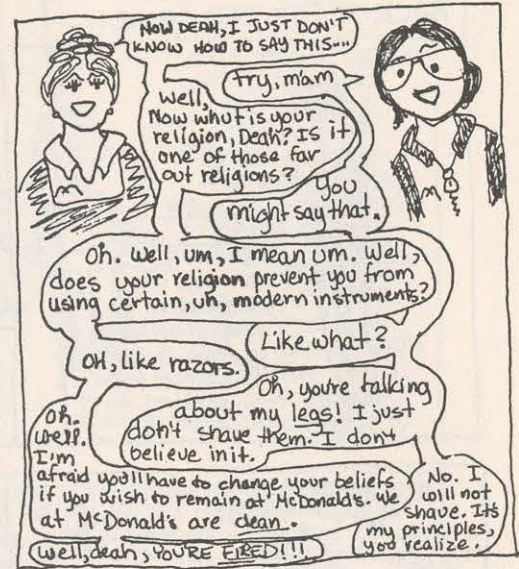 NOW DEAH, I JUST DON'T
KNOW HOW TO SAY THIS----
try, m'am
Well,
Now whut is your
religion, Deah? Is it
one of those far
out religions?
You
might say that.
Oh. Well, um, I mean um. Well,
does your religion prevent you from
using certain, uh, modern instruments?
Like what?
OH, like razors.
Oh, you're talking
about my legs! I just
don't shave them. I don't
believe in it.
Oh.
Well.
I'm
afraid you'll have to change your beliefs
if you wish to remain at McDonald's. We
at McDonald's are clean.
No. I
will not
shave. It's
my principles,
you realize.
Well, deah, YOU'RE FIRED!!!